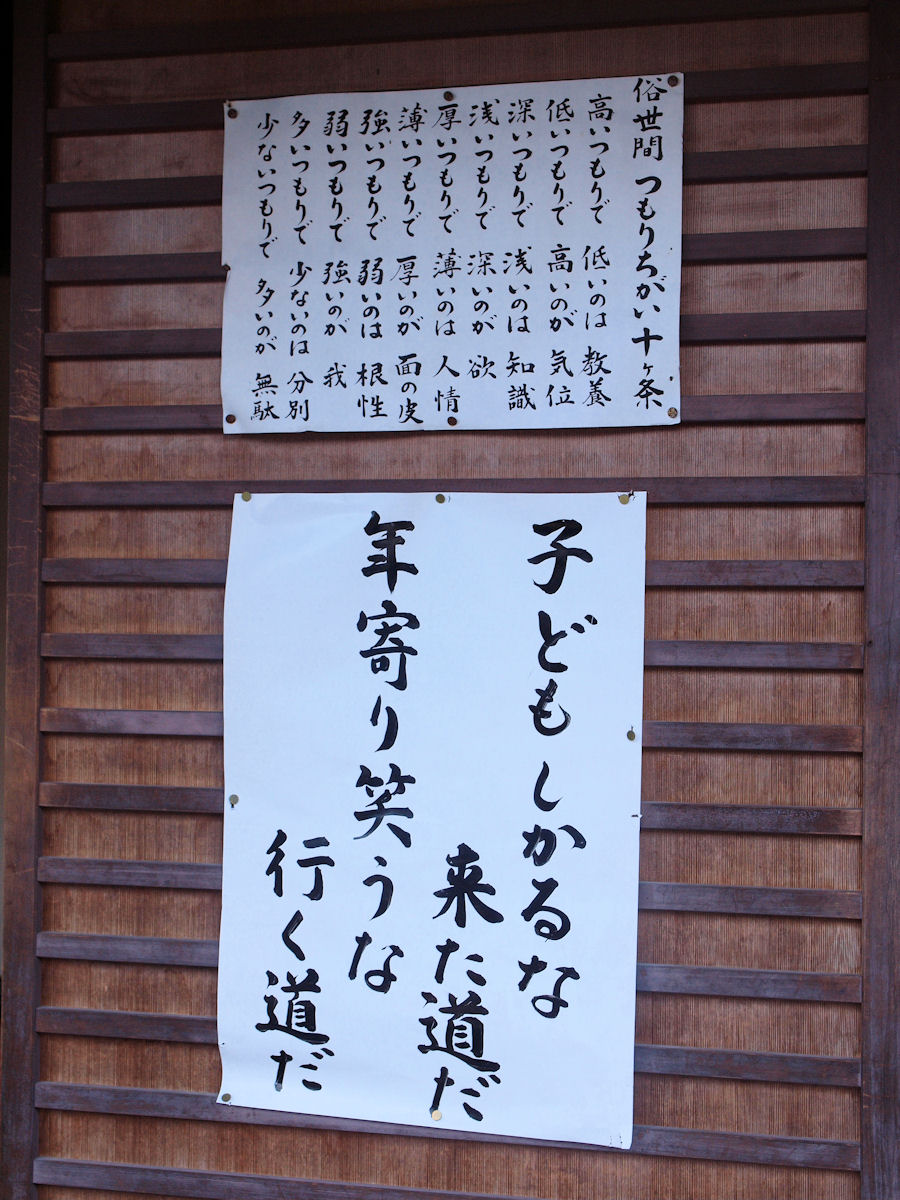 俗世間 つもりちがい十ヶ条
高いつもりで 低いのは 教養
低いつもりで 高いのが 気位
深いつもりで 浅いのは 知識
浅いつもりで 深いのが 欲
厚いつもりで 薄いのは 人情
薄いつもりで 厚いのが 面の皮
強いつもりで 弱いのは 根性
弱いつもりで 強いのが 我
多いつもりで 少ないのは 分別
少ないつもりで 多いのが 無駄
子どもしかるな
来た道だ
年寄り笑うな
行く道だ